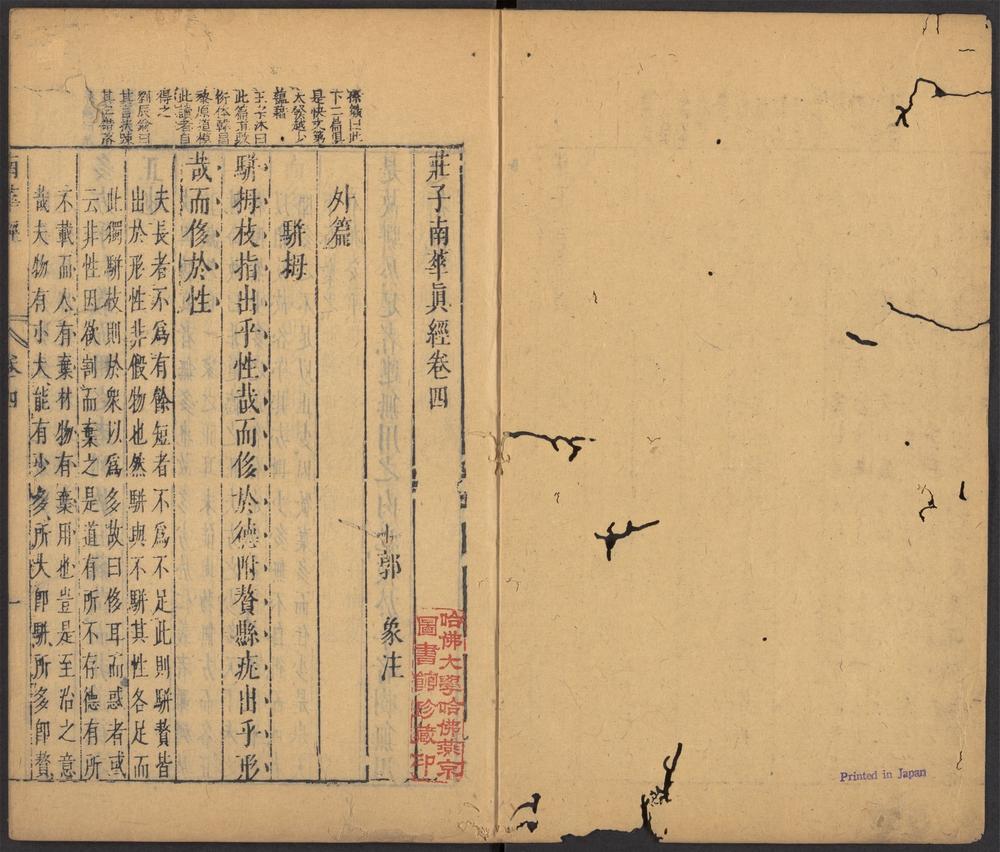 Printed in Japan
莊子南華眞經卷四
郭 象注
哈佛大學哈佛燕京
圖書館珍藏印
外篇
駢拇
駢拇枝指出乎性哉而侈於德附贅縣疣出乎形
哉而侈於性
夫長者不爲有餘短者不爲不足此則駢贅皆
出於形性非假物也然駢與不駢其性各足而
此獨駢枝則於衆以爲多故曰侈耳而惑者或
云非性因欲割而棄之是道有所不存德有所
不載而人有棄材物有棄用也豈是至治之意
哉夫物有小大能有少多所大即駢所多即贅
南華經 卷四 一
孫鑛曰此
下二篇俱
是快文第
太發越少
蘊藉
王
此篇
此讀者自
得之
劉辰翁曰